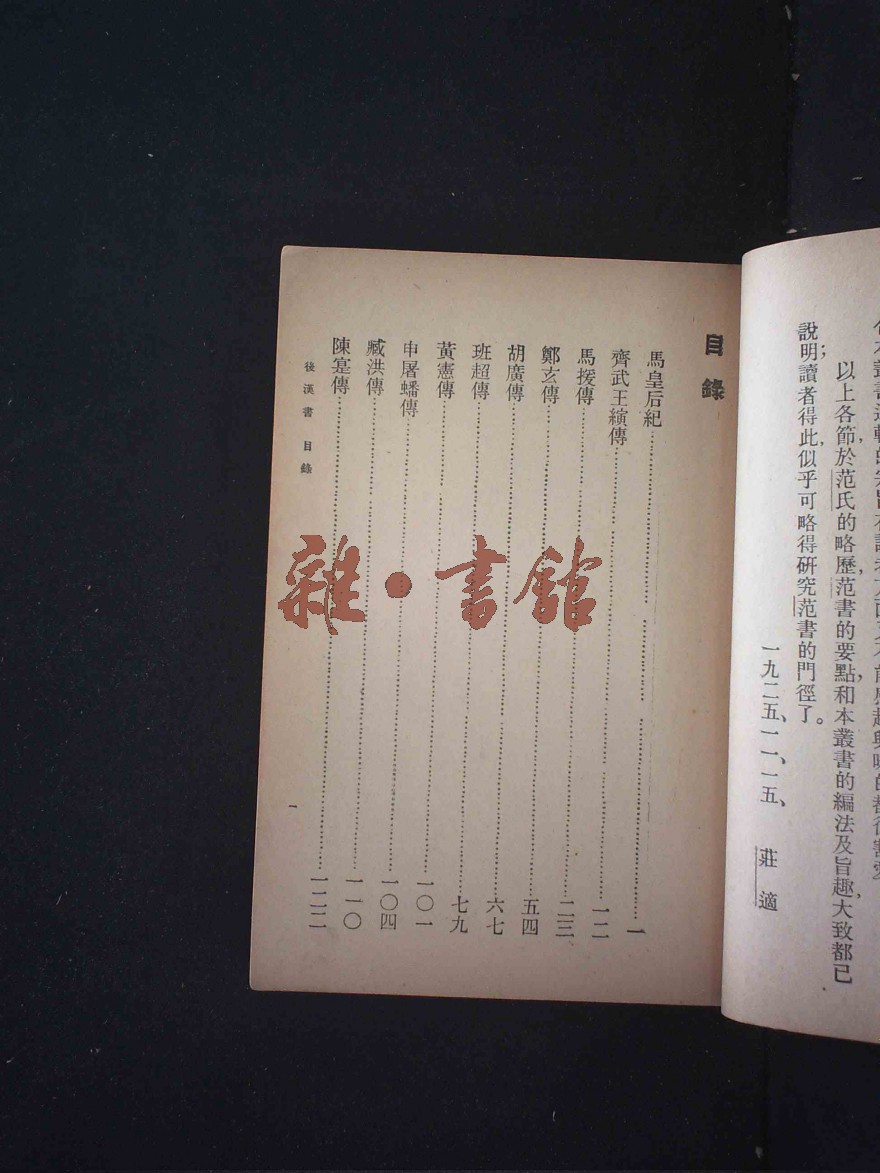 以上各節，於范氏的略歷，范書的要點，和本叢書的編法及旨趣，大致都已
說明；讀者得此，似乎可略得研究范書的門徑了。
一九二五、一一、一五、 莊適
目錄
馬皇后紀……一
齊武王縯傳……一二
馬援傳……二三
鄭玄傳……五四
胡廣傳……六七
班超傳……七九
黃憲傳……一〇一
申屠蟠傳……一〇四
臧洪傳……一一〇
陳寔傳……一二二
後漢書 目錄
一
雜·書館